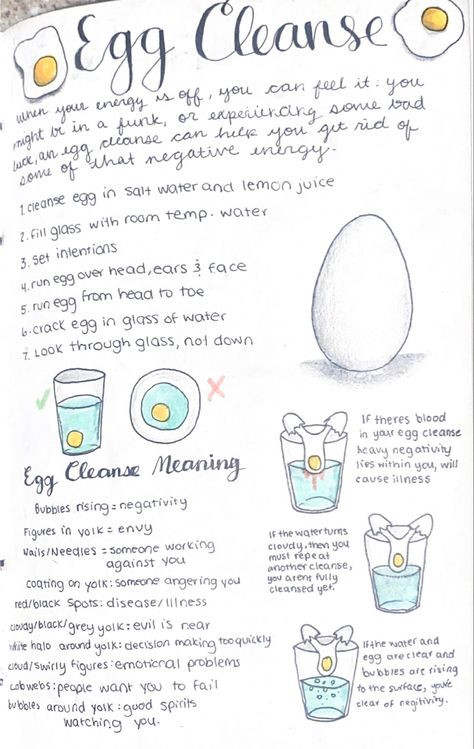 Egg Cleanse
When your energy is off, you can feel it. you
might be in a funk, or experiencing some bad
luck, an egg cleanse can help you get rid of
some of that negative energy.
1. cleanse egg in salt water and lemon juice
2. fill glass with room temp. water
3. set intentions
4. run egg over head, ears & face
5. run egg from head to toe
6. crack egg in glass of water
7. Look through glass, not down
Egg Cleanse Meaning
Bubbles rising = negativity
Figures in yolk = envy
Nails/Needles = someone working
against you
coating on yolk: someone angering you
red/black spots: disease/illness
cloudy/black/grey yolk: evil is near
white halo around yolk: decision making too quickly
cloud/swirly figures: emotional problems
cobwebs: people want you to fail
bubbles around yolk: good spirits
watching you.
If theres blood
in your egg cleanse
heavy negativity
lies within you, will
cause illness
If the water turns
cloudy, then you
must repeat
another cleanse,
you arent fully
cleansed yet.
If the water and
egg are clear and
bubbles are rising
to the surface, you're
clear of negitivity.